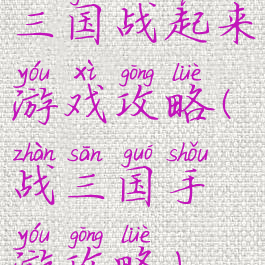 三国战起来
yóu xì gōng lüè
游戏攻略(
zhàn sān guó shǒu
战三国手
yóu gōng lüè
游攻略)